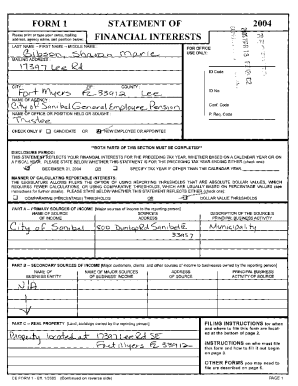 FORM 1 STATEMENT OF 2004
Please print or type your name, mailing address, agency name, and position below:
FINANCIAL INTERESTS
LAST NAME – FIRST NAME – MIDDLE NAME:
Gibson, Sharon Marie
FOR OFFICE USE ONLY:
MAILING ADDRESS:
17397 Lee Rd
ID Code
CITY: ZIP: COUNTY:
Fort Myers FL 33912 Lee
ID No.
NAME OF AGENCY:
City of Sanibel General Employee Pension
Conf. Code
NAME OF OFFICE OR POSITION HELD OR SOUGHT:
Trustee
P. Req. Code
CHECK ONLY IF CANDIDATE OR NEW EMPLOYEE OR APPOINTEE
**BOTH PARTS OF THIS SECTION MUST BE COMPLETED**
DISCLOSURE PERIOD:
THIS STATEMENT REFLECTS YOUR FINANCIAL INTERESTS FOR THE PRECEDING TAX YEAR, WHETHER BASED ON A CALENDAR YEAR OR ON A FISCAL YEAR. PLEASE STATE BELOW WHETHER THIS STATEMENT IS FOR THE PRECEDING TAX YEAR ENDING EITHER (check one):
DECEMBER 31, 2004 OR SPECIFY TAX YEAR IF OTHER THAN THE CALENDAR YEAR:
MANNER OF CALCULATING REPORTABLE INTERESTS:
THE LEGISLATURE ALLOWS FILERS THE OPTION OF USING REPORTING THRESHOLDS THAT ARE ABSOLUTE DOLLAR VALUES, WHICH REQUIRES FEWER CALCULATIONS, OR USING COMPARATIVE THRESHOLDS, WHICH ARE USUALLY BASED ON PERCENTAGE VALUES (see instructions for further details). PLEASE STATE BELOW WHETHER THIS STATEMENT REFLECTS EITHER (check one):
COMPARATIVE (PERCENTAGE) THRESHOLDS OR DOLLAR VALUE THRESHOLDS
PART A -- PRIMARY SOURCES OF INCOME [Major sources of income to the reporting person]
NAME OF SOURCE OF INCOME SOURCE'S ADDRESS DESCRIPTION OF THE SOURCE'S PRINCIPAL BUSINESS ACTIVITY
City of Sanibel 800 Dunlop Rd Sanibel FL Municipality
33957
PART B -- SECONDARY SOURCES OF INCOME [Major customers, clients, and other sources of income to businesses owned by the reporting person]
NAME OF BUSINESS ENTITY NAME OF MAJOR SOURCES OF BUSINESS' INCOME ADDRESS OF SOURCE PRINCIPAL BUSINESS ACTIVITY OF SOURCE
N/A
PART C -- REAL PROPERTY [Land, buildings owned by the reporting person]
Property located at 17397 Lee Rd SE
Fort Myers FL 33912
FILING INSTRUCTIONS for when and where to file this form are located at the bottom of page 2.
INSTRUCTIONS on who must file this form and how to fill it out begin on page 3.
OTHER FORMS you may need to file are described on page 6.
CE FORM 1 - Eff. 1/2005 (Continued on reverse side) PAGE 1